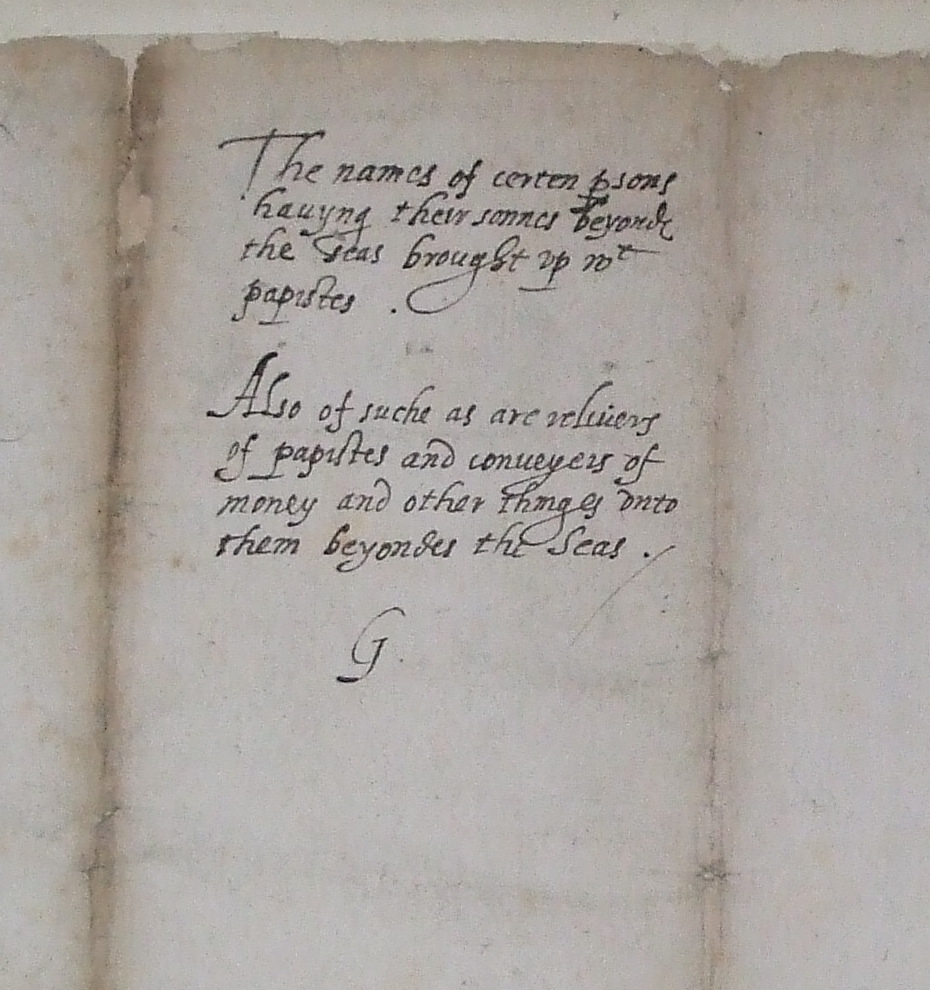 The names of certen psons
hauyng their sonnes beyond
the Seas brought vp wt
papistes .
Also of suche as are relivers
of papistes and conueyers of
money and other thinges vnto
them beyondes the Seas .
G